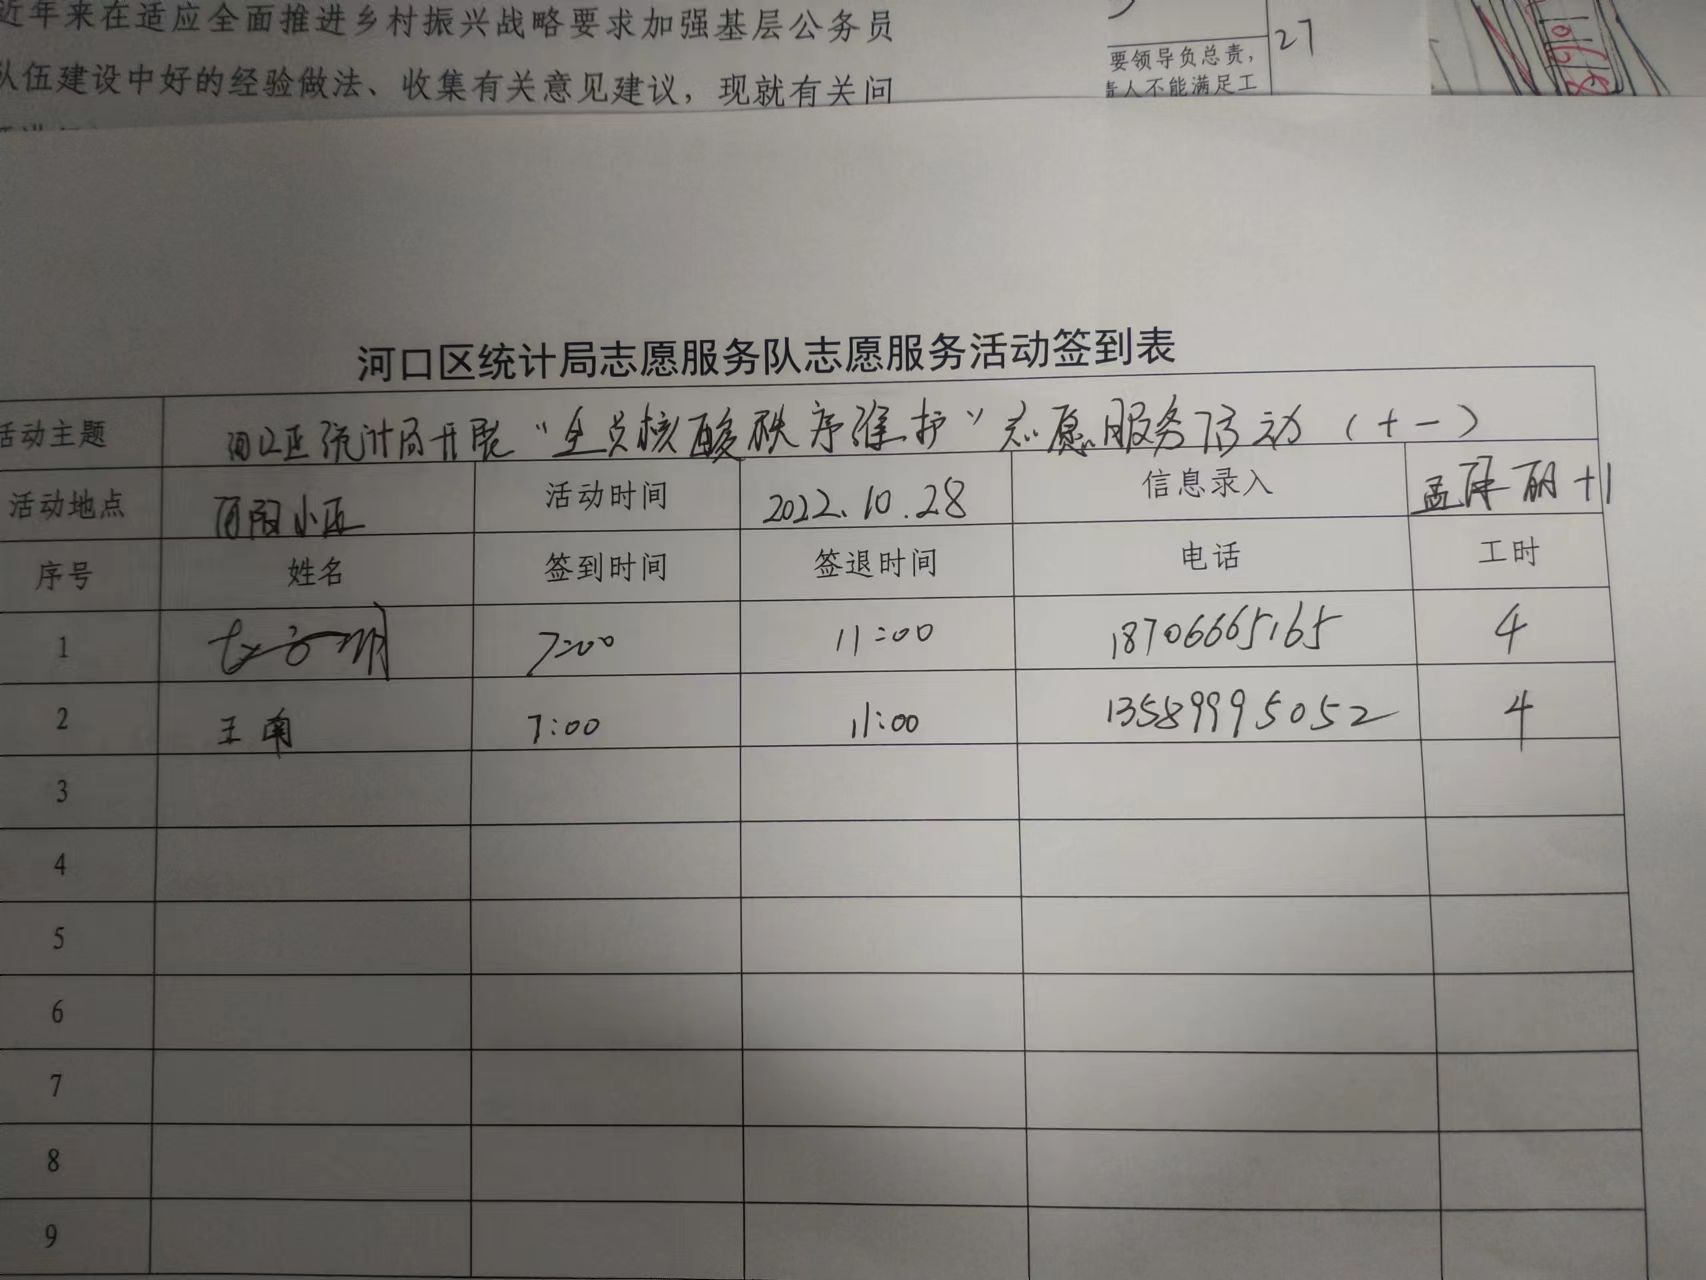 近年来在适应全面推进乡村振兴战略要求加强基层公务员
队伍建设中好的经验做法、收集有关意见建议，现就有关问
要领导负总责，
责人不能满足工
27
河口区统计局志愿服务队志愿服务活动签到表
活动主题 河口区统计局开展“全员核酸秩序维护”志愿服务活动（十一）
活动地点 河阳小区 活动时间 2022.10.28 信息录入 孟 丽 +1
序号 姓名 签到时间 签退时间 电话 工时
1 7:00 11:00 18706665165 4
2 王南 7:00 11:00 13589995052 4
3
4
5
6
7
8
9